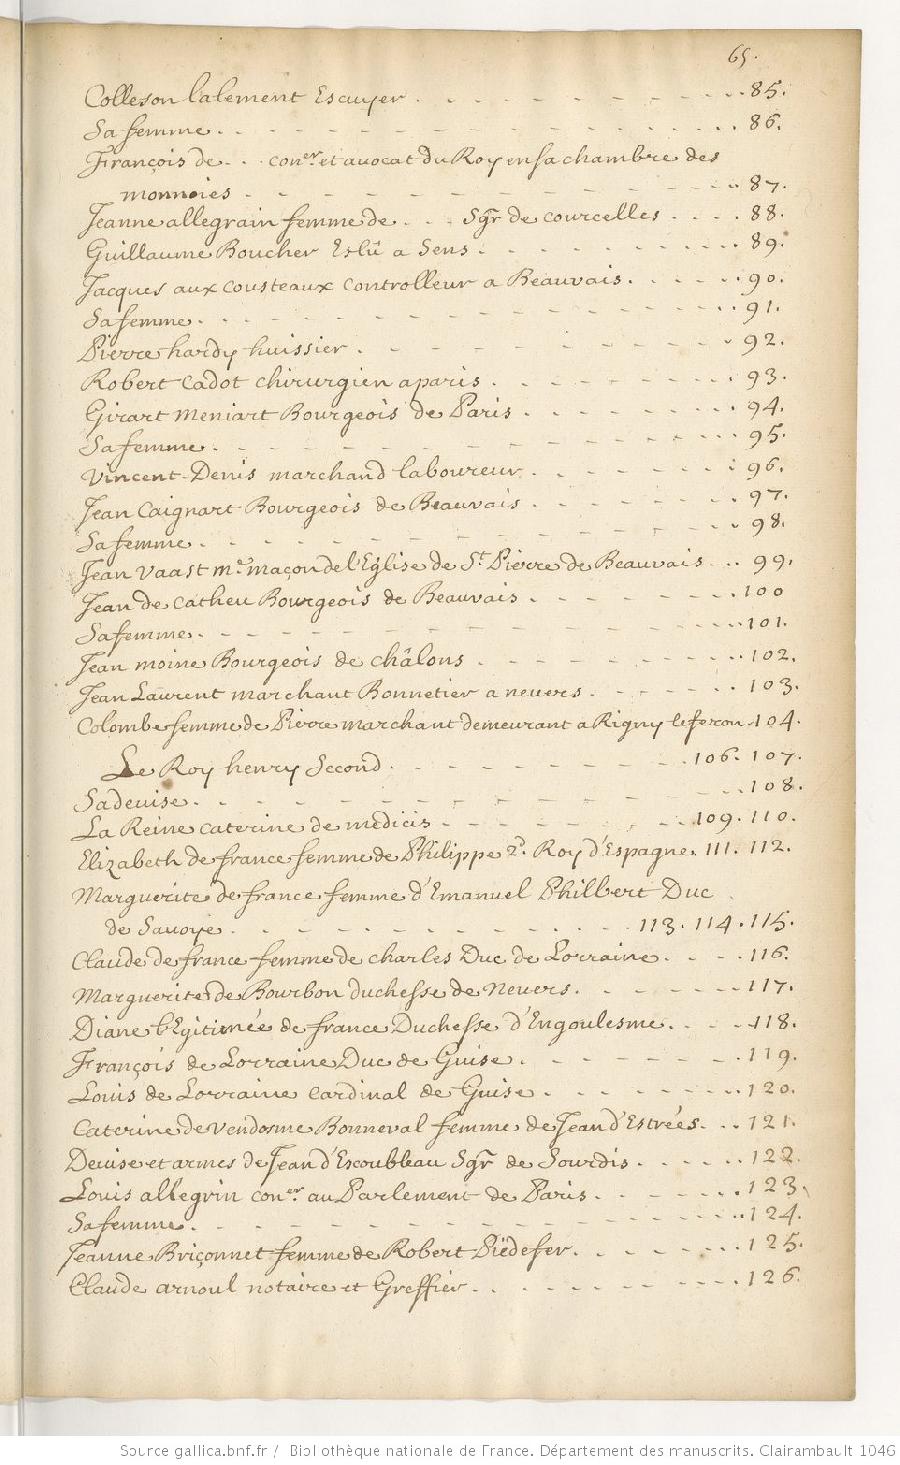 65.
Colleson lalement Escuyer . . . 85.
Sa femme . . . 86.
François de . . . con.er et avocat du Roy en sa chambre des
monnoies . . . 87.
Jeanne allegrain femme de . . . Sgr de courcelles . . . 88.
Guillaume Boucher Eslû a Sens . . . 89.
Jacques aux cousteaux controlleur a Beauvais . . . 90.
Sa femme . . . 91.
Pierre hardy huissier . . . 92.
Robert Cadot chirurgien a paris . . . 93.
Girart Meniart Bourgeois de Paris . . . 94.
Sa femme . . . 95.
Vincent Denis marchand laboureur . . . 96.
Jean Caignart Bourgeois de Beauvais . . . 97.
Sa femme . . . 98.
Jean Vaast m.e maçon de l'Eglise de S.t Pierre de Beauvais . . . 99.
Jean de catheu Bourgeois de Beauvais . . . 100
Sa femme . . . 101.
Jean moine Bourgeois de châlons . . . 102.
Jean Laurent marchant Bonnetier a nevers . . . 103.
Colombe femme de Pierre marchant demeurant a Rigny le feron 104.
Le Roy henry Second . . . 106. 107.
Sa devise . . . 108.
La Reine caterine de medicis . . . 109. 110.
Elizabeth de france femme de Philippe 2.e Roy d'Espagne. 111. 112.
Marguerite de france femme d'Emanuel Philbert Duc
de Savoye . . . 113. 114. 115.
Claude de france femme de charles Duc de Lorraine . . . 116.
Marguerite de Bourbon duchesse de Nevers . . . 117.
Diane légitimée de france Duchesse d'Engoulesme . . . 118.
François de Lorraine Duc de Guise . . . 119.
Louis de Lorraine cardinal de Guise . . . 120.
Caterine de Vendosme Bonneval femme de Jean d'Estrées . . . 121.
Devise et armes de Jean d'Escoubleau Sgr de Sourdis . . . 122.
Louis allegrin con.er au Parlement de Paris . . . 123.
Sa femme . . . 124.
Jeanne Briçonnet femme de Robert Piedefer . . . 125.
Claude arnoul notaire et Greffier . . . 126.
Source gallica.bnf.fr / Bibliothèque nationale de France. Département des manuscrits. Clairambault 1046